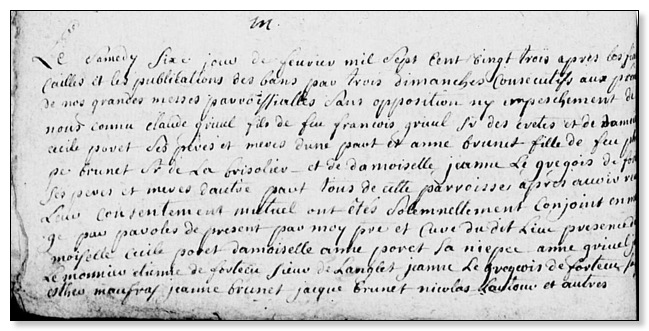 m.
Le Samedy Sixe jour de feuvrier mil Sept Cent Vingt trois apres les fian
Cailles et les publications des bans par trois dimanches Consecutifs aux prone
de nos grandes messes parroissialles Sans opposition ny impeschement de
nous Connu Claude griuel fils de feu françois griuel Sr des et de dame
Cecile poret Ses peres et meres dune part et anne brunet fille de feu
pe brunet Sr de La brisolier et de damoiselle jeanne Le gregois de
Ses peres et meres dautre part tous de cette parroisses apres auoir
Leur Consentement mutuel ont êtes Solemnellement Conjoint en ma
ge par paroles de present par moy pre et Curé du dit Lieu presence de
moiselle Cecile poret damoiselle anne poret Sa niepce anne griuel
Le monnier de Sieur de Langlet jeanne Le gregeois de
esther maufras jeanne brunet jacque brunet nicolas et autres